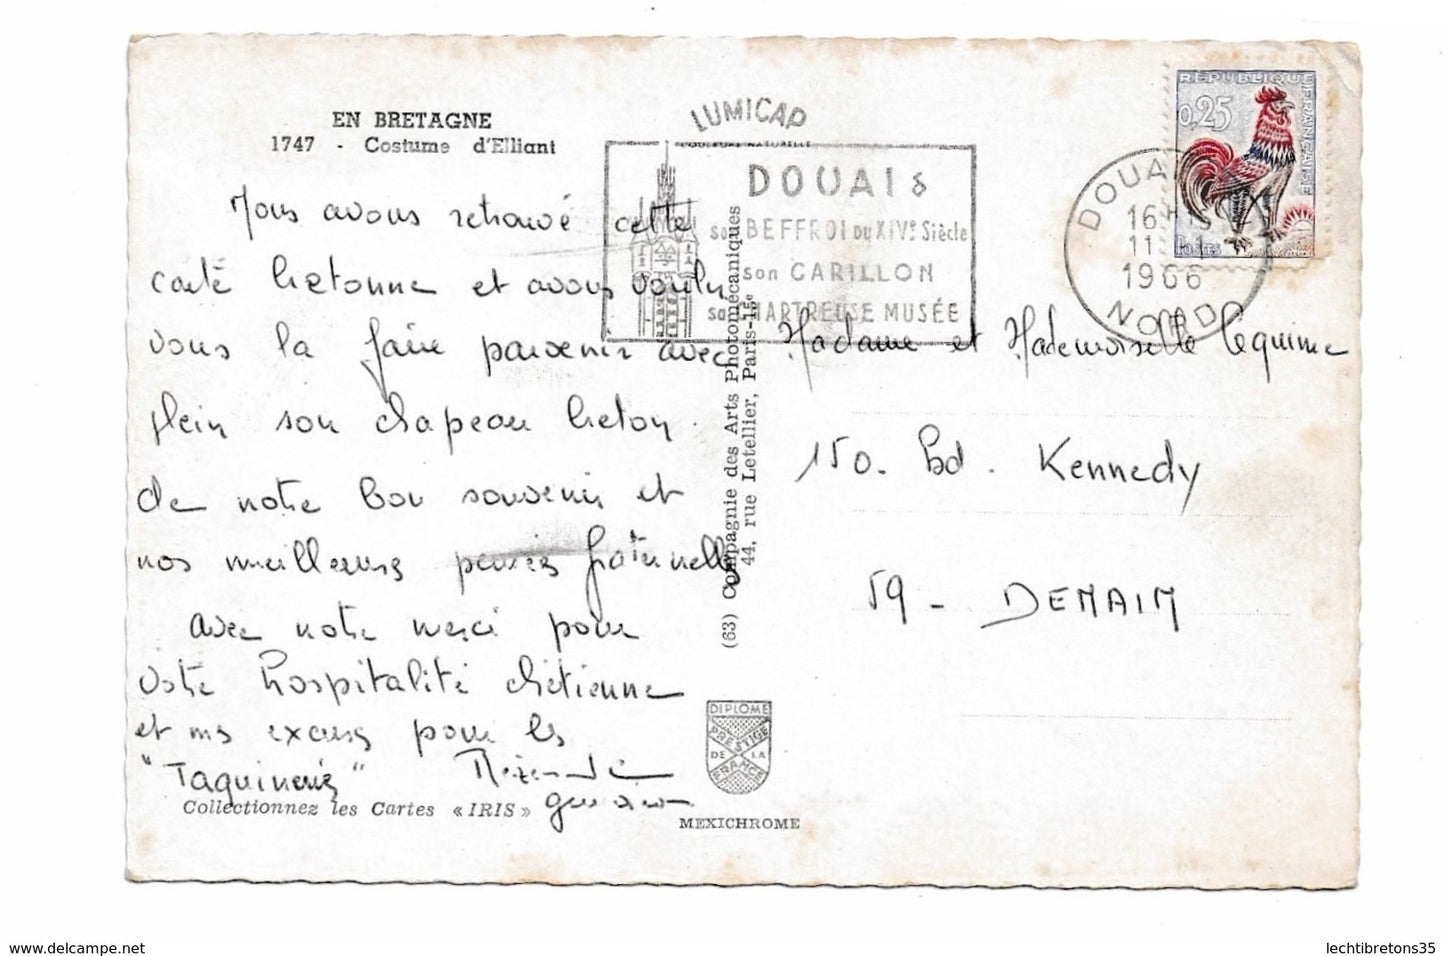 EN BRETAGNE
1747 - Costume d'Elliant
Nous avons retrouvé cette
carte bretonne et avons voulu
vous la faire parvenir avec
plein son chapeau breton
de notre bon souvenir et
nos meilleures pensées fraternelles
avec notre merci pour
votre hospitalité chrétienne
et mes excuses pour les
"Taquineries"
Collectionnez les Cartes « IRIS »
LUMICAP
COULEURS NATURELLES
DOUAI &
son BEFFROI DU XIVe Siècle
son CARILLON
sa CHARTREUSE MUSÉE
(63) Compagnie des Arts Photomécaniques
44, rue Letellier, Paris-15e
DIPLOME
PRESTIGE
DE LA
FRANCE
MEXICHROME
REPUBLIQUE FRANÇAISE
0,25
POSTES
DOUAI
16H
11
1966
NORD
Madame et Mademoiselle Lequime
150. Bd. Kennedy
59 - DENAIN
www.delcampe.net
lechtibretons35